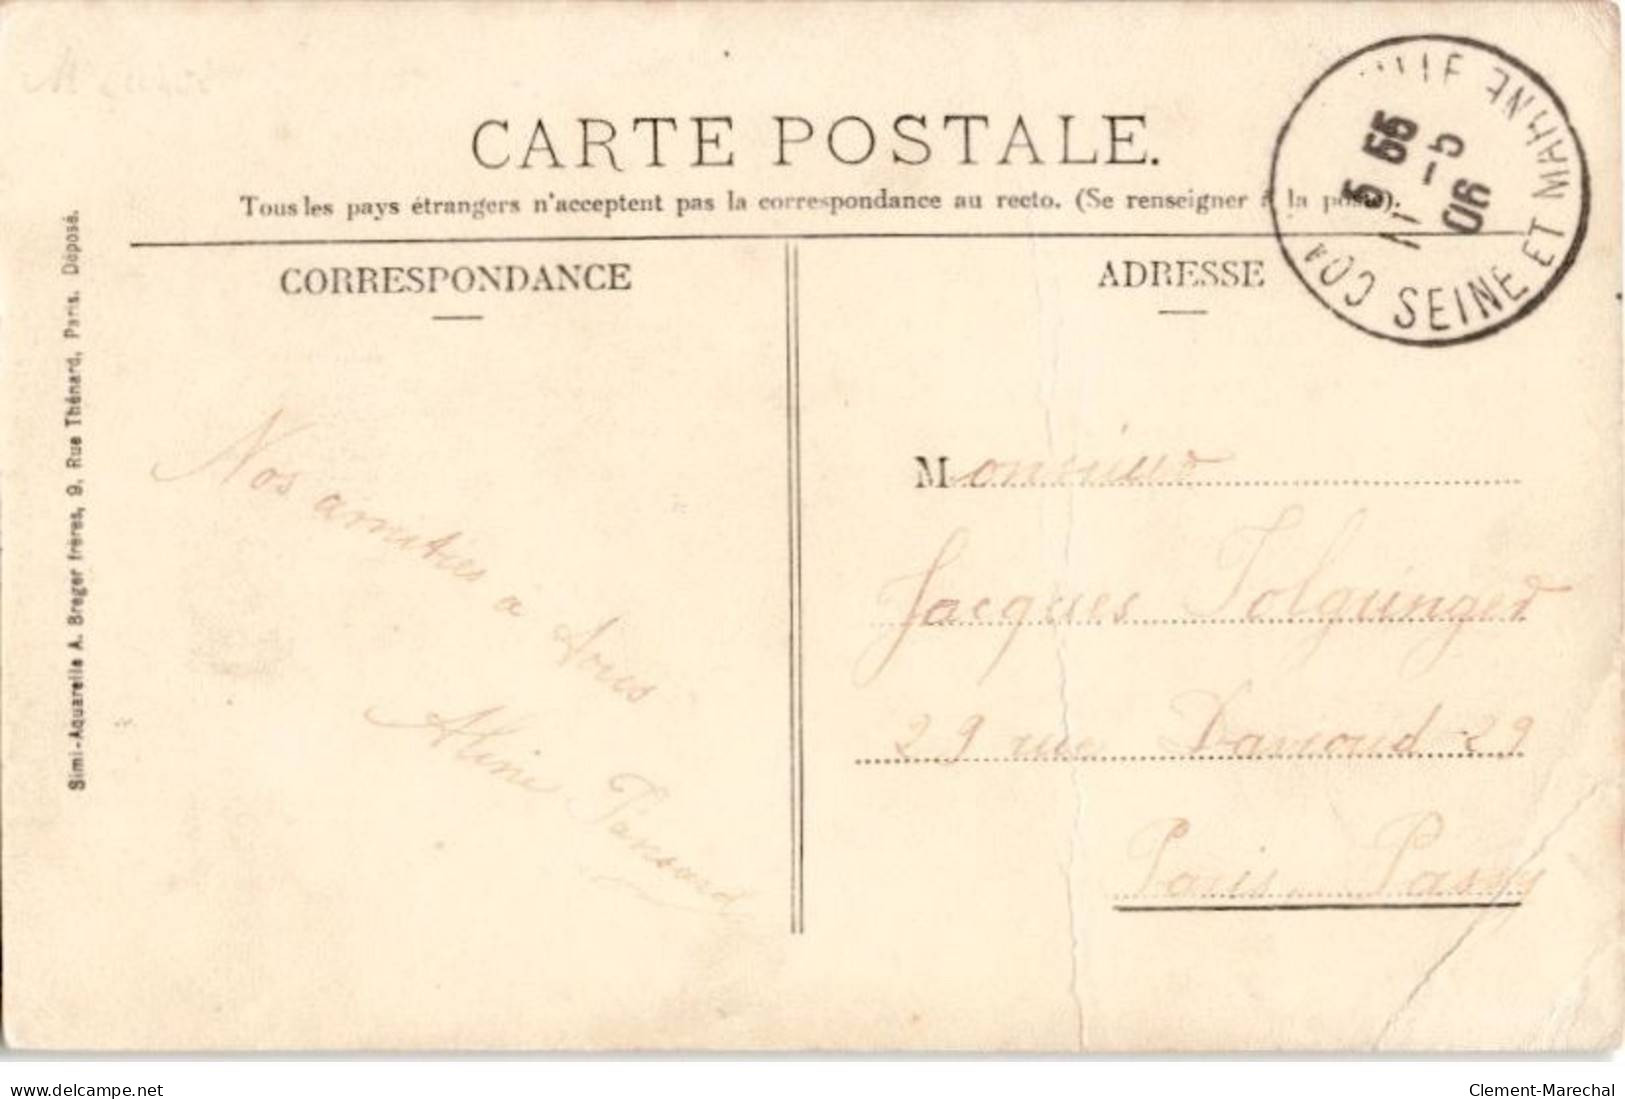 CARTE POSTALE.
Tous les pays étrangers n'acceptent pas la correspondance au recto. (Se renseigner à la poste).
CORRESPONDANCE
ADRESSE
SEINE ET MARNE
5 55
11 - 5
06
Simi-Aquarelle A. Breger frères, 9, Rue Thénard, Paris. Déposé.
Nos amitiés
à tous
Aline
Monsieur
Jacques
29 rue 29
Paris Passy
delcampe.net
Clement-Marechal